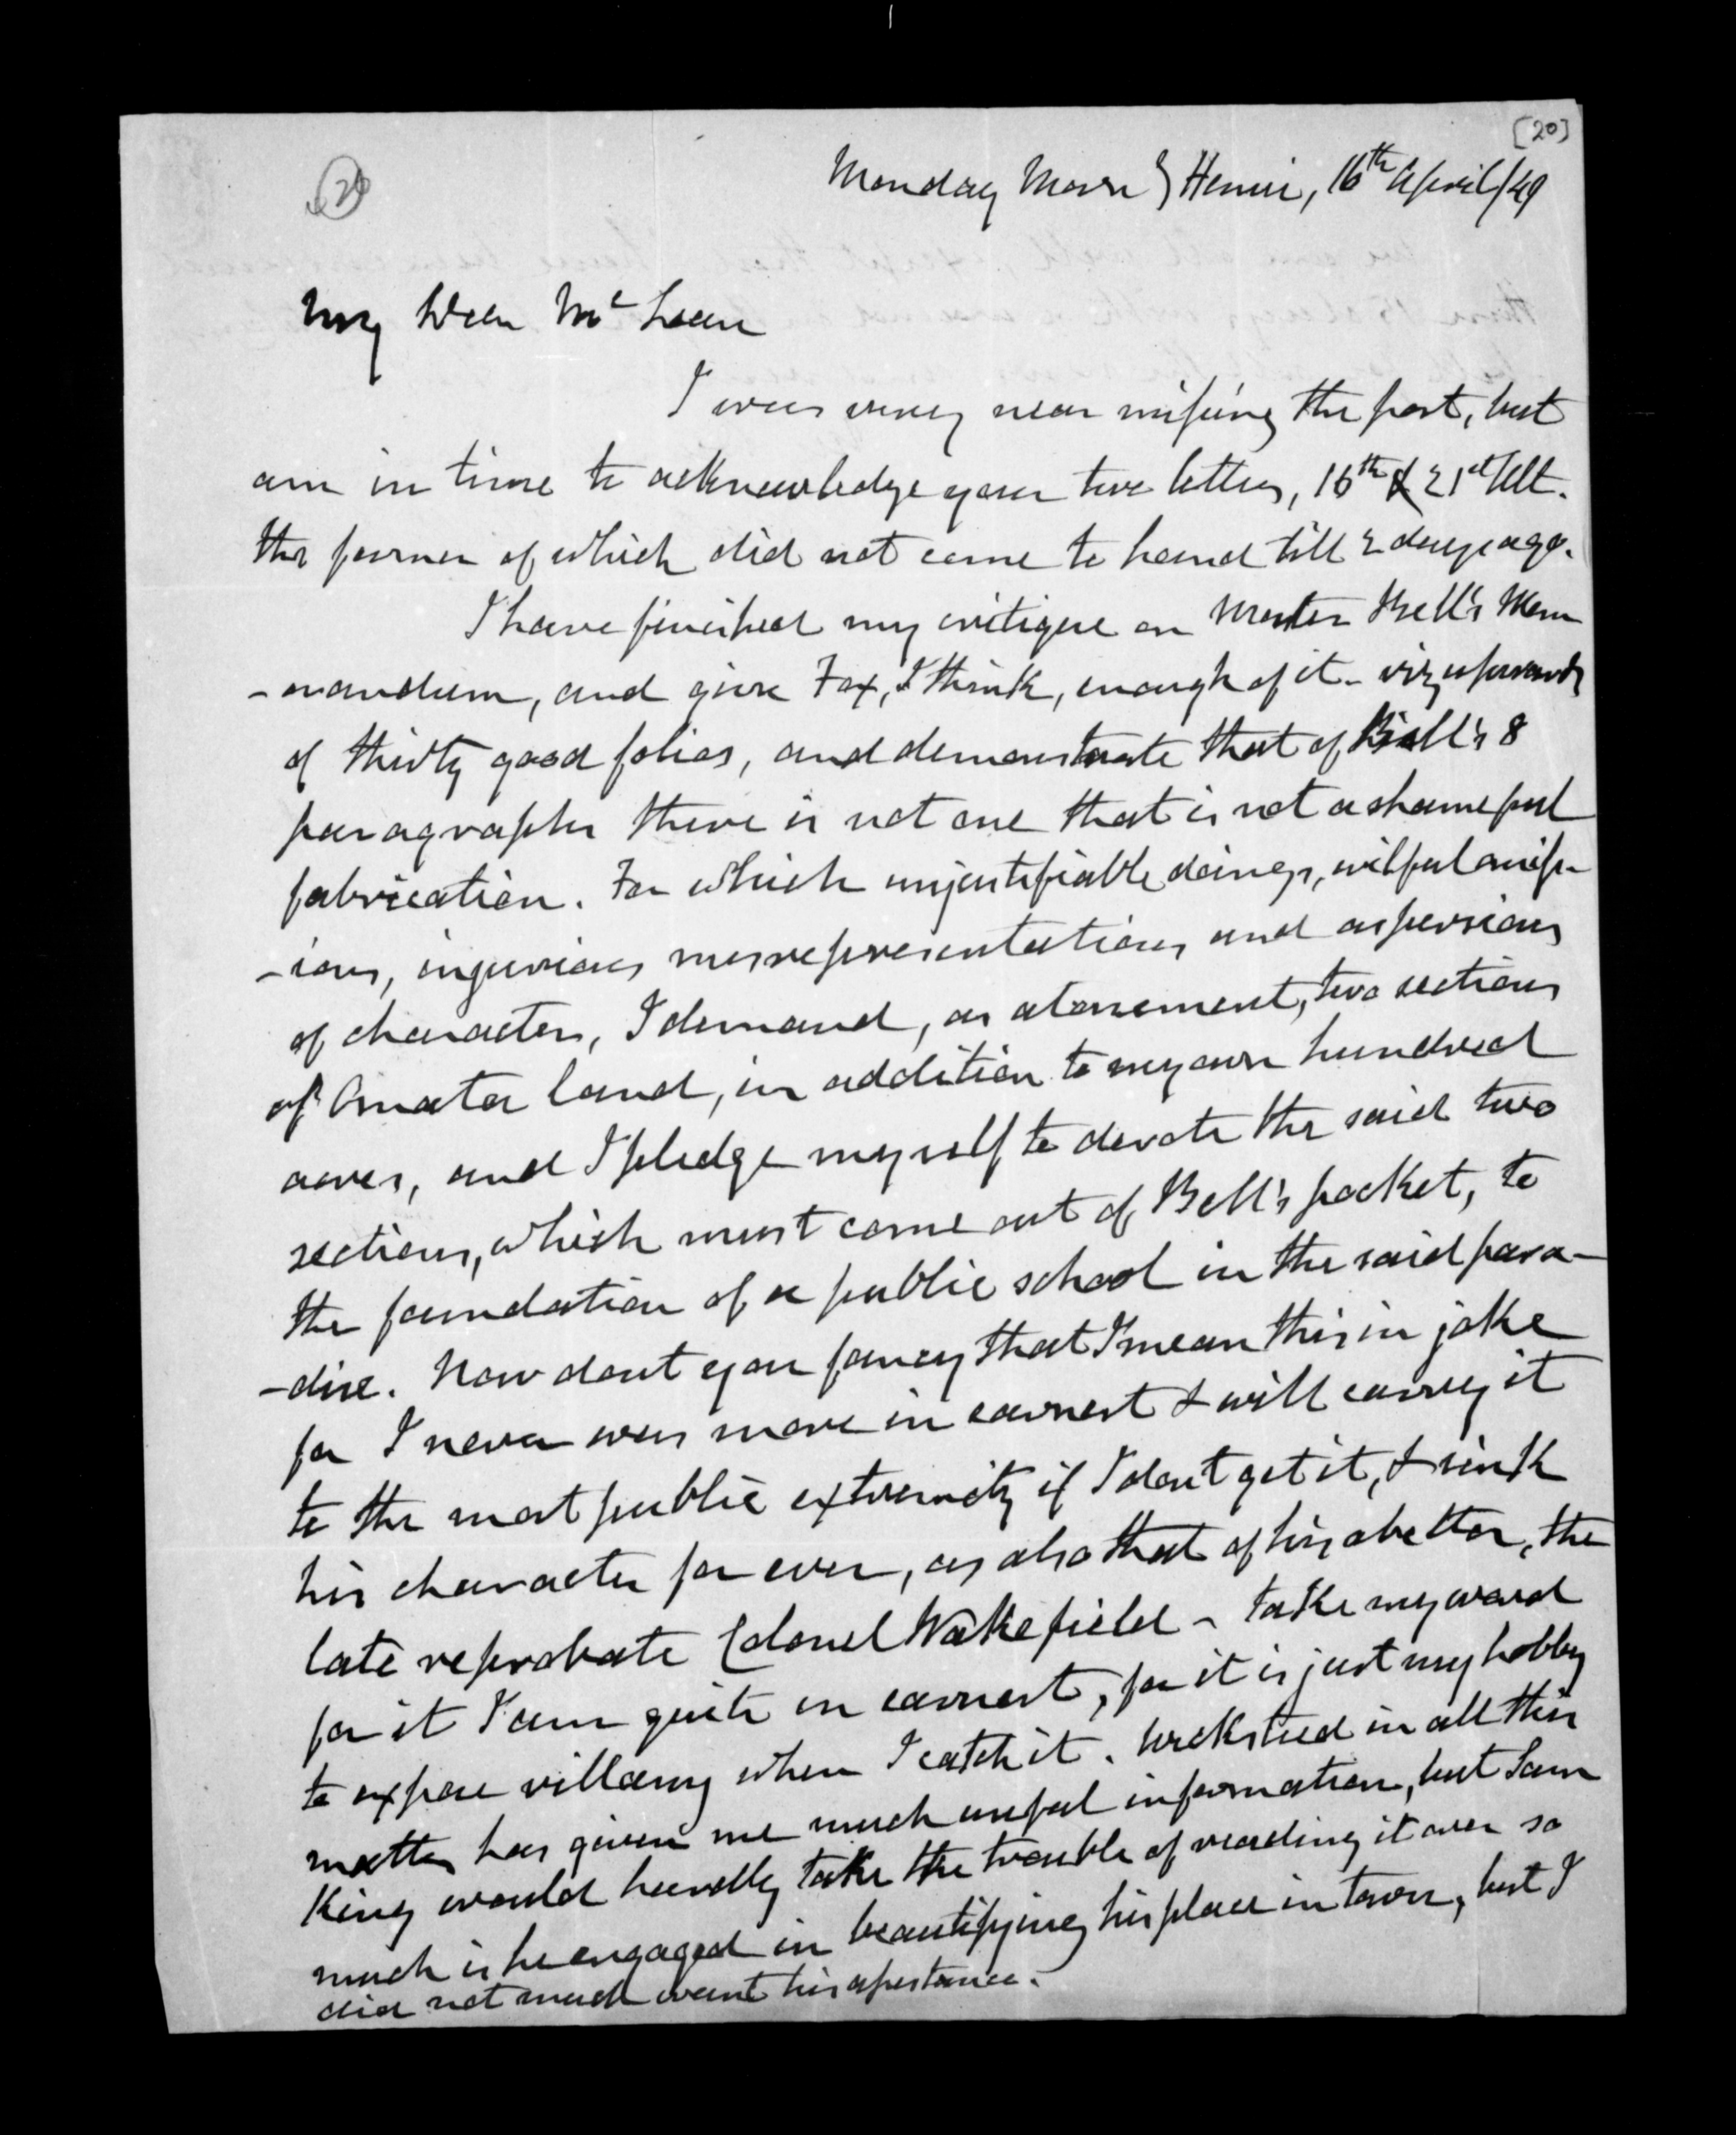 [20]
Monday Morn} Henui, 16th April/49
My Dear McLean
I was very near missing the post, but
am in time to acknowledge your two letters, 16th & 21st Ult.
the former of which did not come to hand till 2 days ago.
I have finished my critique on Master Bell's Mem
-orandum, and give Fox, I think, enough of it - viz upwards
of thirty good folios, and demonstrate that of Bell's 8
paragraphs there is not one that is not a shameful
fabrication. For which unjustifiable doings, wilful omiss-
-ions, injurious misrepresentations and aspersions
of character, I demand, as atonement, two sections
of Omata land, in addition to my own hundred
acres, and I pledge myself to devote the said two
sections, which must come out of Bell's pocket, to
the foundation of a public school in the said para-
-dise. Now dont you fancy that I mean this in joke
for I never was more in earnest & will carry it
to the most public extremity if I dont get it, & sink
his character for ever, as also that of his abettor, the
late reprobate Colonel Wakefield - take my word
for it I am quite in earnest, for it is just my hobby
to expose villany when I catch it. Wicksteed in all this
matter has given me much useful information, but Sam
King would hardly take the trouble of reading it over so
much is he engaged in beautifying his place in town, but I
did not much want his assistance.